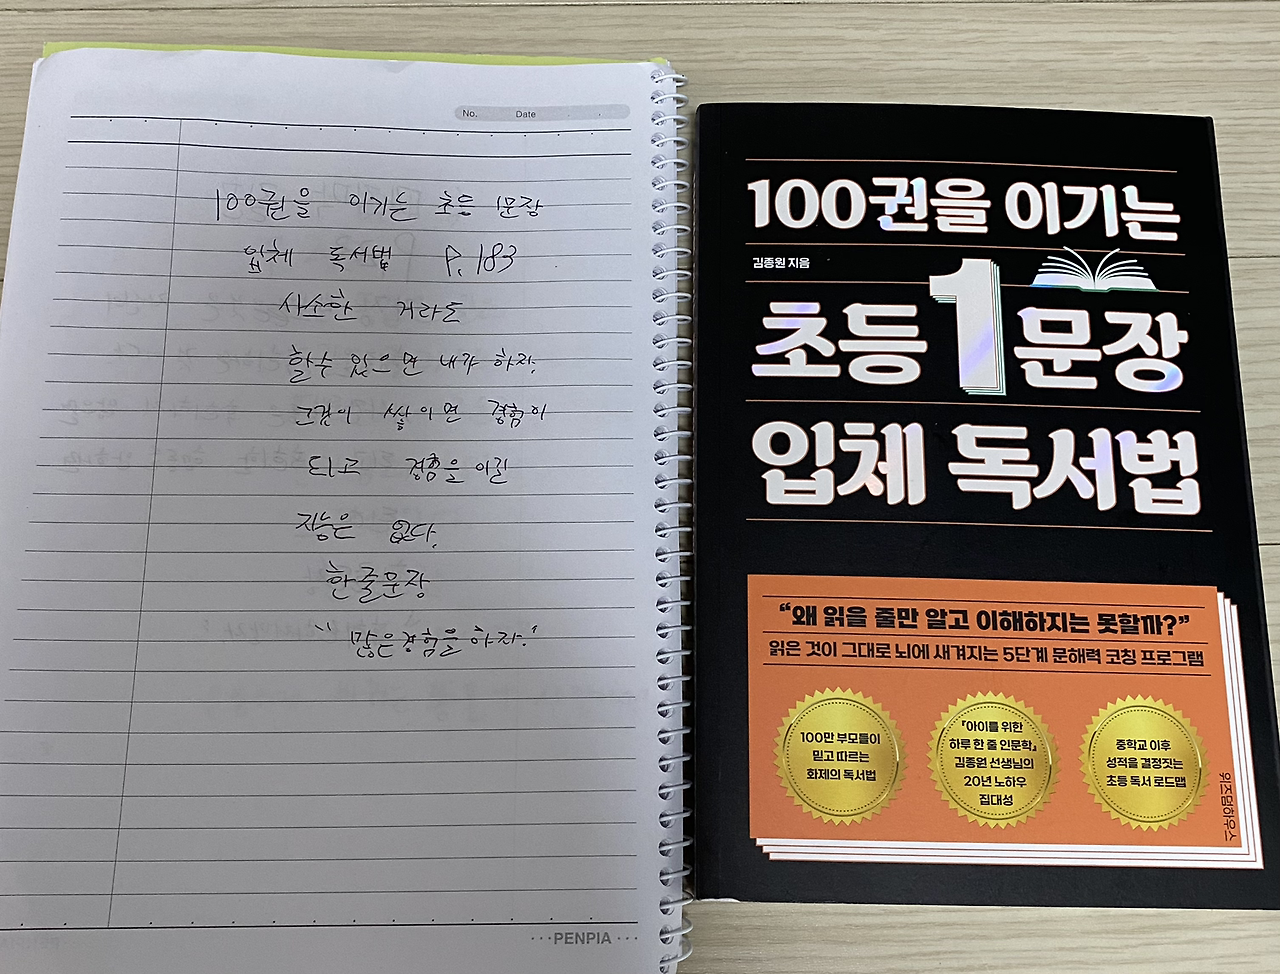 No. Date
100권을 이기는 초등 1문장
입체 독서법 P. 183
사소한 거라도
할수 있으면 내가 하자.
그것이 쌓이면 경험이
되고 경험을 이길
지능은 없다.
한줄문장
"많은경험을 하자."
PENPIA
100권을 이기는
김종원 지음
초등 1 문장
입체 독서법
"왜 읽을 줄만 알고 이해하지는 못할까?"
읽은 것이 그대로 뇌에 새겨지는 5단계 문해력 코칭 프로그램
100만 부모들이
믿고 따르는
화제의 독서법
『아이를 위한
하루 한 줄 인문학』
김종원 선생님의
20년 노하우
집대성
중학교 이후
성적을 결정짓는
초등 독서 로드맵
위즈덤하우스